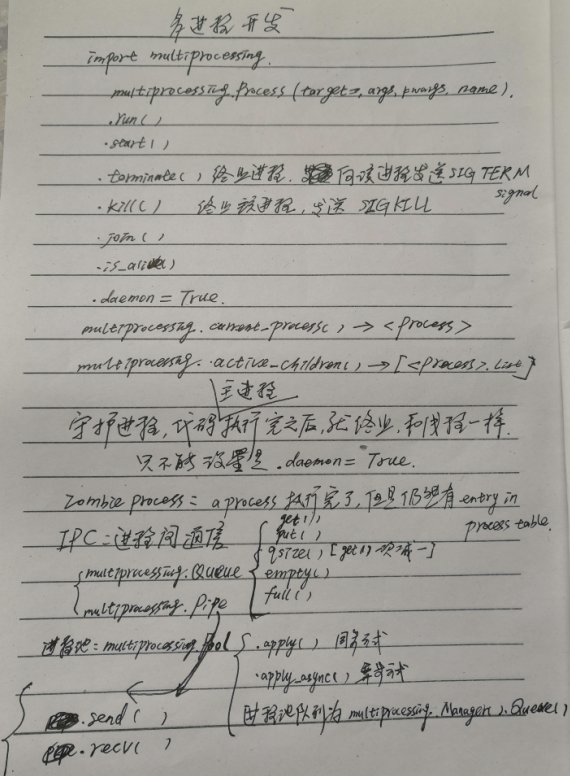 多进程开发
import multiprocessing.
multiprocessing.Process (target=, args, pwargs, name).
.run()
.start()
.terminate() 终止进程. 向该进程发送SIGTERM
signal
.kill() 终止该进程, 发送 SIGKILL
.join()
.is_alive()
.daemon = True.
multiprocessing.current_process() → <Process>
multiprocessing.active_children() → [<Process>.List]
主进程
守护进程, 代码执行完之后, 就终止, 和线程一样.
只不能设置是 .daemon = True.
Zombie process = a process 执行完了, 但是仍有 entry in
process table.
IPC = 进程间通信
get()
put()
qsize() [get() 一项减一]
multiprocessing.Queue
empty()
full()
multiprocessing.Pipe
进程池 = multiprocessing.Pool
.apply() 同步方式
.apply_async() 异步方式
进程池队列为 multiprocessing.Manager().Queue()
.send()
.recv()